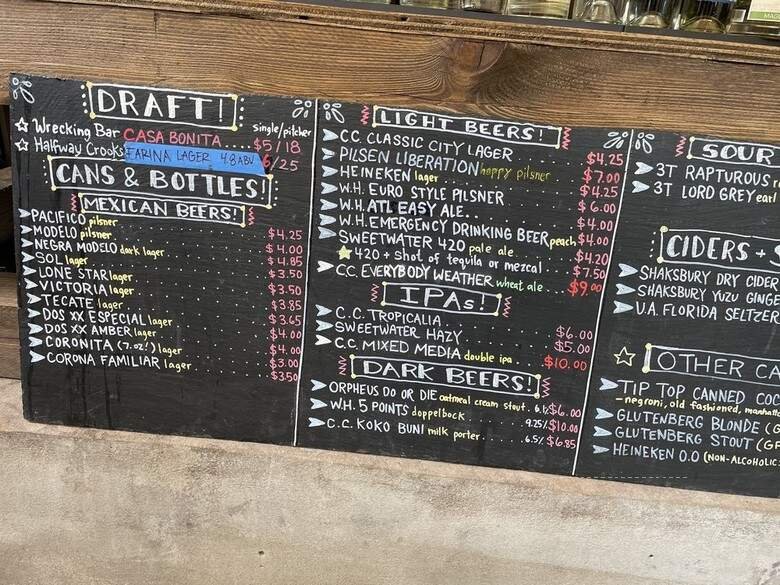 DRAFT!
single/pitcher
Wrecking Bar CASA BONITA.... $5/18
Halfway Crooks FARINA LAGER 4.8 ABV 6/25
CANS & BOTTLES!
MEXICAN BEERS!
PACIFICO pilsner $4.25
MODELO pilsner $4.00
NEGRA MODELO dark lager $4.85
SOL lager $3.50
LONE STAR lager $3.50
VICTORIA lager $3.85
TECATE lager $3.65
DOS XX ESPECIAL lager $4.00
DOS XX AMBER lager $4.00
CORONITA (7.0z!) lager $3.00
CORONA FAMILIAR lager $3.50
LIGHT BEERS!
C.C. CLASSIC CITY LAGER $4.25
PILSEN LIBERATION hoppy pilsner $7.00
HEINEKEN lager $4.25
W.H. EURO STYLE PILSNER $6.00
W.H. ATL EASY ALE.. $4.00
W.H. EMERGENCY DRINKING BEER peach $4.00
SWEETWATER 420 pale ale $4.20
420 + shot of tequila or mezcal $7.50
C.C. EVERYBODY WEATHER wheat ale $9.00
IPAs!
C.C. TROPICALIA $6.00
SWEETWATER HAZY $5.00
C.C. MIXED MEDIA double ipa $10.00
DARK BEERS!
ORPHEUS DO OR DIE oatmeal cream stout. 6.1% $6.00
W.H. 5 POINTS doppelbock 9.25% $10.00
C.C. KOKO BUNI milk porter 6.5% $6.85
SOUR
3T RAPTUROUS
3T LORD GREY earl
CIDERS + S
SHAKSBURY DRY CIDER
SHAKSBURY YUZU GINGE
U.A. FLORIDA SELTZER
OTHER CA
TIP TOP CANNED COC
-negroni, old fashioned, manha
GLUTENBERG BLONDE (G
GLUTENBERG STOUT (GF
HEINEKEN 0.0 (NON-ALCOHOLIC